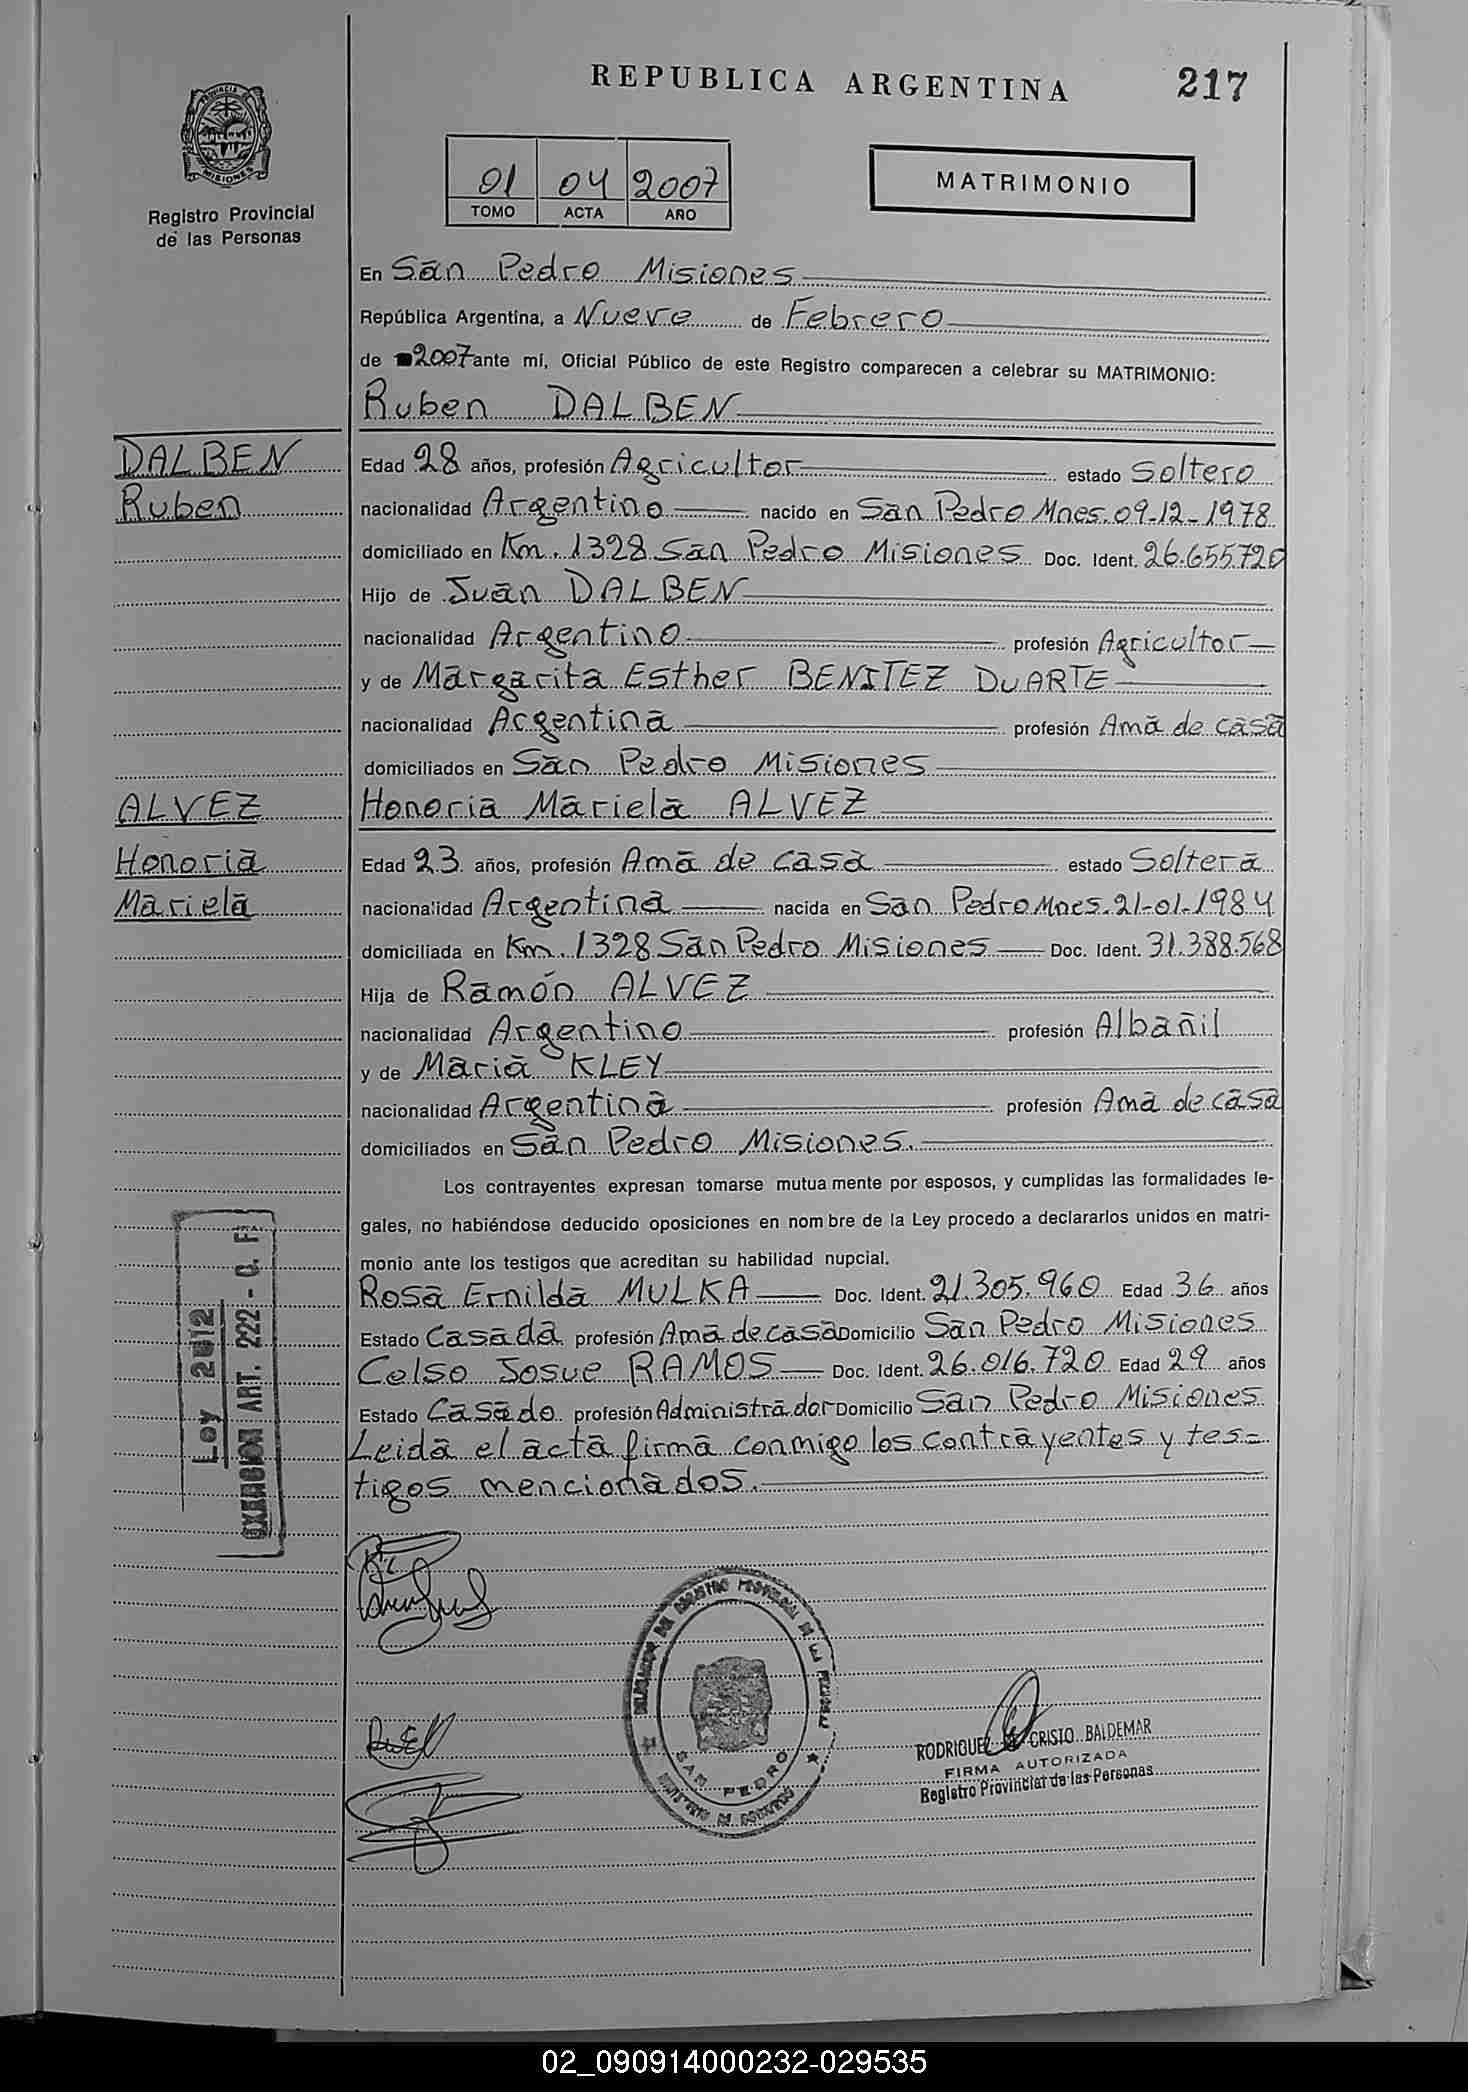 REPUBLICA ARGENTINA 217
PROVINCIA DE MISIONES
Registro Provincial
de las Personas
01 04 2007
TOMO ACTA AÑO
MATRIMONIO
En San Pedro Misiones
República Argentina, a Nueve de Febrero
de 2007 ante mí, Oficial Público de este Registro comparecen a celebrar su MATRIMONIO:
Ruben DALBEN
DALBEN
Ruben
Edad 28 años, profesión Agricultor estado Soltero
nacionalidad Argentino nacido en San Pedro Mnes. 09-12-1978
domiciliado en Km. 1328 San Pedro Misiones Doc. Ident. 26.655.720
Hijo de Juan DALBEN
nacionalidad Argentino profesión Agricultor
y de Margarita Esther BENITEZ DUARTE
nacionalidad Argentina profesión Ama de casa
domiciliados en San Pedro Misiones
ALVEZ
Honoria
Mariela
Honoria Mariela ALVEZ
Edad 23 años, profesión Ama de casa estado Soltera
nacionalidad Argentina nacida en San Pedro Mnes. 21-01-1984
domiciliada en Km. 1328 San Pedro Misiones Doc. Ident. 31.388.568
Hija de Ramón ALVEZ
nacionalidad Argentino profesión Albañil
y de Maria KLEY
nacionalidad Argentina profesión Ama de casa
domiciliados en San Pedro Misiones.
Los contrayentes expresan tomarse mutuamente por esposos, y cumplidas las formalidades le-
gales, no habiéndose deducido oposiciones en nombre de la Ley procedo a declararlos unidos en matri-
monio ante los testigos que acreditan su habilidad nupcial.
Rosa Ernilda MULKA Doc. Ident. 21.305.960 Edad 36 años
Estado Casada profesión Ama de casa Domicilio San Pedro Misiones
Celso Josue RAMOS Doc. Ident. 26.016.720 Edad 29 años
Estado Casado profesión Administrador Domicilio San Pedro Misiones
Leida el acta firma conmigo los contrayentes y tes=
tigos mencionados.
Ley 2612
ART. 222 - C. F.
DELEGACION DEL REGISTRO PROVINCIAL DE LAS PERSONAS
SAN PEDRO
MINISTERIO DE GOBIERNO
RODRIGUEZ DE CRISTO BALDEMAR
FIRMA AUTORIZADA
Registro Provincial de las Personas
02_090914000232-029535